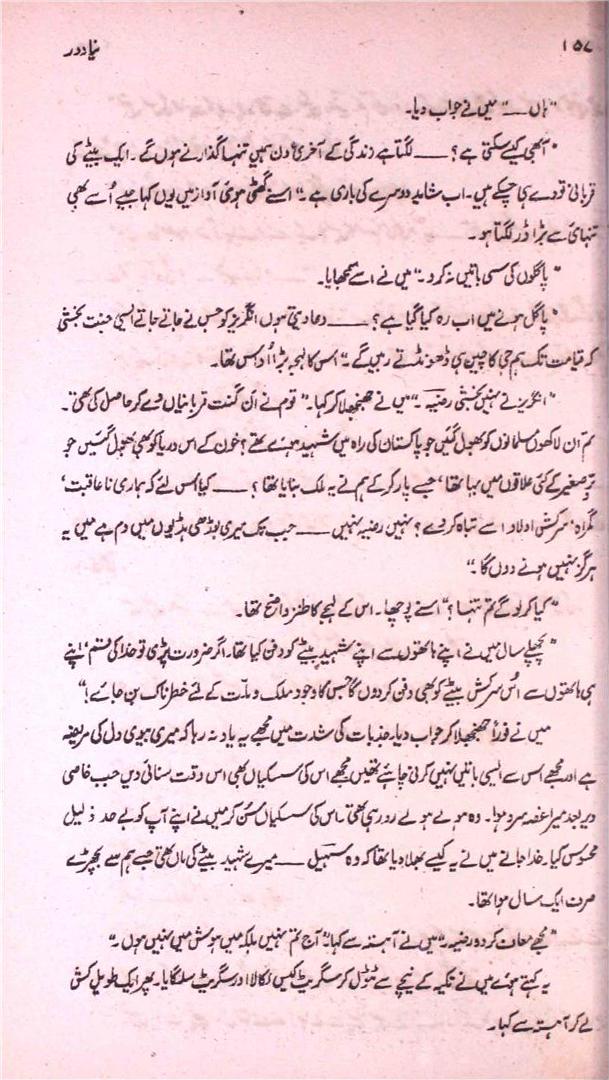 ۱۵۷
نیا دور
"ہاں ــــ" میں نے جواب دیا۔
"آبھی کیسے سکتی ہے؟ ــــ لگتا ہے زندگی کے آخری دن ہمیں تنہا گذارنے ہوں گے۔ ایک بیٹے کی
قربانی تو دے ہی چکے ہیں۔ اب شاید دوسرے کی باری ہے۔" اسنے گھٹی ہوئی آواز میں یوں کہا جیسے اُسے بھی
تنہائی سے بڑا ڈر لگتا ہو۔
"پاگلوں کی سی باتیں نہ کرو۔" میں نے اسے سمجھایا۔
"پاگل ہونے میں اب رہ کیا گیا ہے؟ ــــ دعا دیتی ہوں انگریز کو جس نے جاتے جاتے ایسی جنت بخشی
کہ قیامت تک ہم جی کا چین ہی ڈھونڈتے رہیں گے۔" اس کا لہجہ بڑا اُداس تھا۔
"انگریز نے نہیں بخشی رضیہ۔" میں نے جھنجھلا کر کہا۔ "قوم نے ان گنت قربانیاں دے کر حاصل کی تھی۔
تم ان لاکھوں مسلمانوں کو بھول گئیں جو پاکستان کی راہ میں شہید ہوئے تھے؟ خون کے اس دریا کو بھی بھول گئیں جو
برِصغیر کے کئی علاقوں میں بہا تھا، جسے پار کر کے ہم نے یہ ملک بنایا تھا؟ ــــ کیا اس لئے کہ ہماری ناعاقبت،
گمراہ، سرکش اولاد اسے تباہ کر دے؟ نہیں رضیہ نہیں ــــ جب تک میری بوڑھی ہڈیوں میں دم ہے میں یہ
ہرگز نہیں ہونے دوں گا۔"
"کیا کر لو گے تم تنہا؟" اسنے پوچھا۔ اس کے لہجے کا طنز واضح تھا۔
"پچھلے سال میں نے اپنے ہاتھوں سے اپنے شہید بیٹے کو دفن کیا تھا۔ اگر ضرورت پڑی تو خدا کی قسم، اپنے
ہی ہاتھوں سے اُس سرکش بیٹے کو بھی دفن کردوں گا جس کا وجود ملک و ملّت کے لئے خطرناک بن جائے!"
میں نے فوراً جھنجھلا کر جواب دیا۔ جذبات کی شدت میں مجھے یہ یاد نہ رہا کہ میری بیوی دل کی مریضہ
ہے اور مجھے اس سے ایسی باتیں نہیں کرنی چاہئے تھیں مجھے اس کی سسکیاں بھی اس وقت سنائی دیں جب خاصی
دیر بعد میرا غصہ سرد ہوا۔ وہ ہولے ہولے رو رہی تھی۔ اس کی سسکیاں سُن کر میں نے اپنے آپ کو بے حد ذلیل
محسوس کیا۔ خدا جانے میں نے یہ کیسے بھلا دیا تھا کہ وہ سہیل ــــ میرے شہید بیٹے کی ماں تھی جسے ہم سے بچھڑے
صرف ایک سال ہوا تھا۔
"مجھے معاف کردو رضیہ۔" میں نے آہستہ سے کہا۔ "آج تم نہیں بلکہ میں ہوش میں نہیں ہوں۔"
یہ کہتے ہوئے میں نے تکیہ کے نیچے سے ٹٹول کر سگریٹ کیس نکالا اور سگریٹ سلگایا۔ پھر ایک طویل کش
لے کر آہستہ سے کہا۔